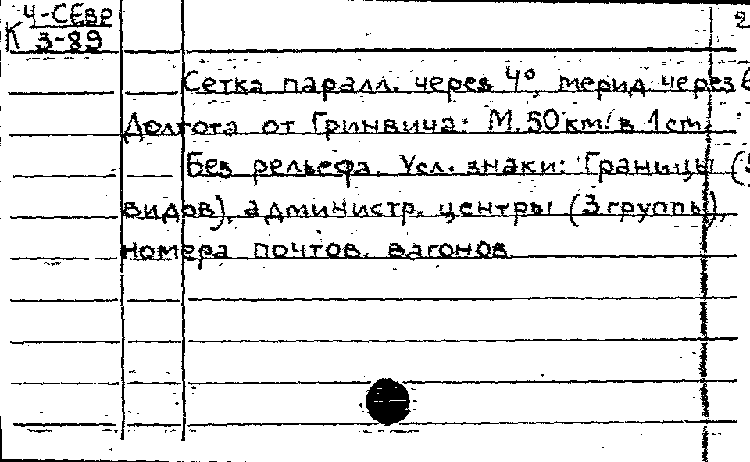 Ч-СЕВР
К 3-89
2
Сетка паралл. через 4°, мерид через 6
Долгота от Гринвича: М. 50 км в 1 cm.
Без рельефа. Усл. знаки: Границы (5
видов), администр. центры (3 группы),
номера почтов. вагонов